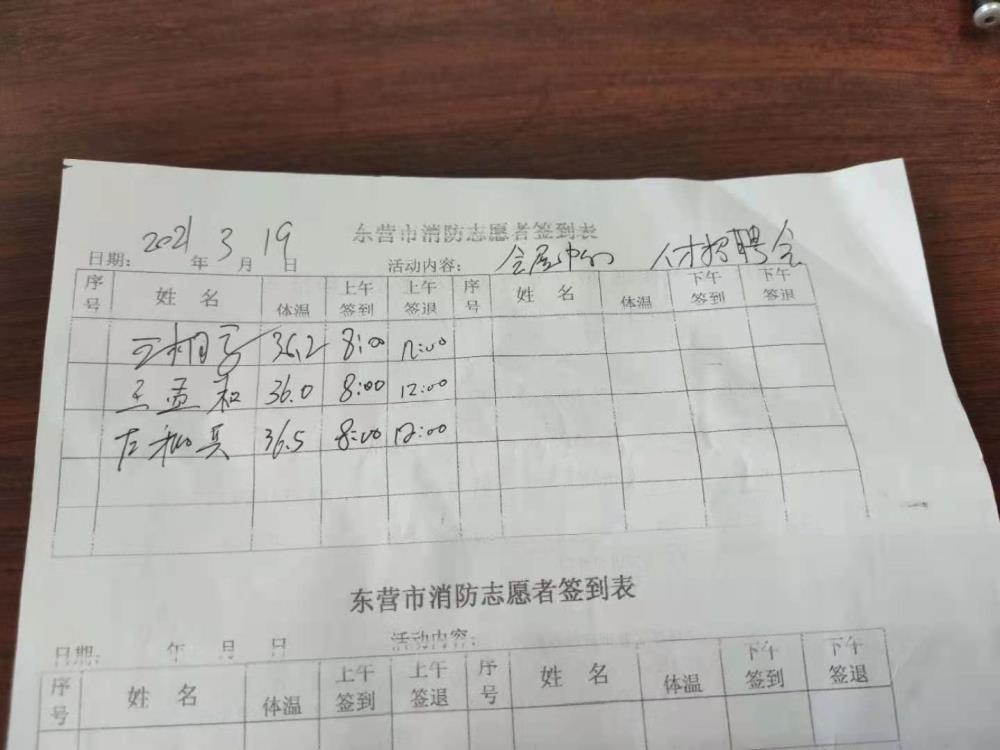 东营市消防志愿者签到表
日期: 2021 年 3 月 19 日 活动内容: 会展中心 人才招聘会
序号 姓 名 体温 上午签到 上午签退 序号 姓 名 体温 下午签到 下午签退
36.2 8:00 12:00
王孟和 36.0 8:00 12:00
左和兵 36.5 8:00 12:00
东营市消防志愿者签到表
日期: 年 月 日 活动内容:
序号 姓 名 体温 上午签到 上午签退 序号 姓 名 体温 下午签到 下午签退